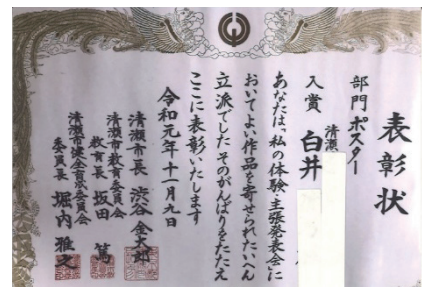 表彰状
部門 ポスター
清瀬
入賞 白井
あなたは、私の体験・主張発表会に
おいてよい作品を寄せられたいへん
立派でした そのがんばりをたたえ
ここに表彰いたします
令和元年十一月九日
清瀬市長 渋谷金太郎
清瀬市教育委員会
教育長 坂田 篤
清瀬市健全育成委員会
委員長 堀内雅之